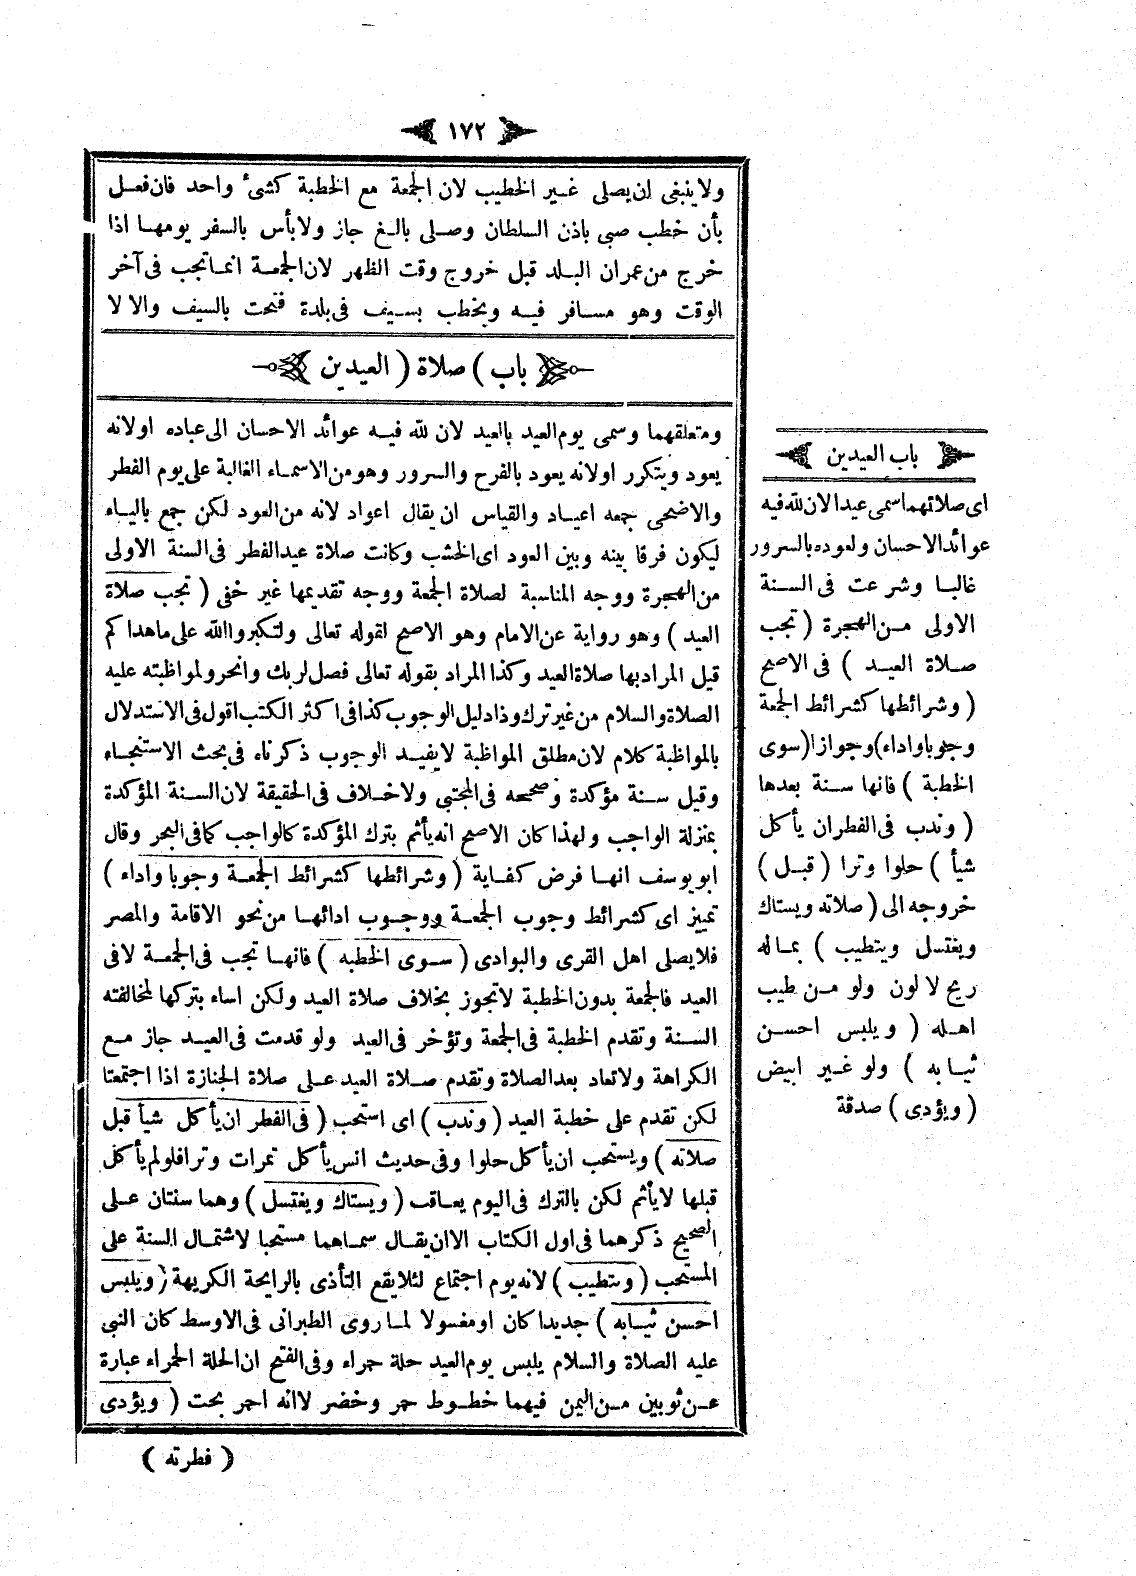 ١٧٢
ولا ينبغى ان يصلى غير الخطيب لان الجمعة مع الخطبة كشئ واحد فان فعل
بأن خطب صبى باذن السلطان وصلى بالغ جاز ولا بأس بالسفر يومها اذا
خرج من عمران البلد قبل خروج وقت الظهر لان الجمعة انما تجب فى آخر
الوقت وهو مسافر فيه ويخطب بسيف فى بلدة فتحت بالسيف والا لا
باب ) صلاة ( العيدين
ومتعلقهما وسمى يوم العيد بالعيد لان لله فيه عوائد الاحسان الى عباده اولانه
يعود ويتكرر اولانه يعود بالفرح والسرور وهو من الاسماء الغالبة على يوم الفطر
والاضحى جمعه اعياد والقياس ان يقال اعواد لانه من العود لكن جمع بالياء
ليكون فرقا بينه وبين العود اى الخشب وكانت صلاة عيد الفطر فى السنة الاولى
من الهجرة ووجه المناسبة لصلاة الجمعة ووجه تقديمها غير خفى ( تجب صلاة
العيد ) وهو رواية عن الامام وهو الاصح لقوله تعالى ولتكبروا الله على ما هداكم
قيل المراد بها صلاة العيد وكذا المراد بقوله تعالى فصل لربك وانحر ولمواظبته عليه
الصلاة والسلام من غير ترك وذا دليل الوجوب كذا فى اكثر الكتب اقول فى الاستدلال
بالمواظبة كلام لان مطلق المواظبة لا يفيد الوجوب ذكرناه فى بحث الاستنجاء
وقيل سنة مؤكدة وصححه فى المجتبى ولا خلاف فى الحقيقة لان السنة المؤكدة
بمنزلة الواجب ولهذا كان الاصح انه يأثم بترك المؤكدة كالواجب كما فى البحر وقال
ابو يوسف انها فرض كفاية ( وشرائطها كشرائط الجمعة وجوبا واداء )
تمييز اى كشرائط وجوب الجمعة ووجوب ادائها من نحو الاقامة والمصر
فلا يصلى اهل القرى والبوادى ( سوى الخطبه ) فانها تجب فى الجمعة لا فى
العيد فالجمعة بدون الخطبة لا تجوز بخلاف صلاة العيد ولكن اساء بتركها لمخالفته
السنة وتقدم الخطبة فى الجمعة وتؤخر فى العيد ولو قدمت فى العيد جاز مع
الكراهة ولا تعاد بعد الصلاة وتقدم صلاة العيد على صلاة الجنازة اذا اجتمعتا
لكن تقدم على خطبة العيد ( وندب ) اى استحب ( فى الفطر ان يأكل شيأ قبل
صلاته ) ويستحب ان يأكل حلوا وفى حديث انس يأكل تمرات وترا فلو لم يأكل
قبلها لا يأثم لكن بالترك فى اليوم يعاقب ( ويستاك ويغتسل ) وهما سنتان على
الصحيح ذكرهما فى اول الكتاب الا ان يقال سماهما مستحبا لاشتمال السنة على
المستحب ( ويتطيب ) لانه يوم اجتماع لئلا يقع التأذى بالرايحة الكريهة ( ويلبس
احسن ثيابه ) جديدا كان او مغسولا لما روى الطبرانى فى الاوسط كان النبى
عليه الصلاة والسلام يلبس يوم العيد حلة حمراء وفى الفتح ان الحلة الحمراء عبارة
عن ثوبين من اليمن فيهما خطوط حمر وخضر لا انه احمر بحت ( ويؤدى
( فطرته )
باب العيدين
اى صلاتهما سمى عيدا لان لله فيه
عوائد الاحسان ولعوده بالسرور
غالبا وشرعت فى السنة
الاولى من الهجرة ( تجب
صلاة العيد ) فى الاصح
( وشرائطها كشرائط الجمعة
وجوبا واداء ) وجوازا ( سوى
الخطبة ) فانها سنة بعدها
( وندب فى الفطر ان يأكل
شيأ ) حلوا وترا ( قبل )
خروجه الى ( صلاته ويستاك
ويغتسل ويتطيب ) بماله
ريح لا لون ولو من طيب
اهله ( ويلبس احسن
ثيابه ) ولو غير ابيض
( ويؤدى ) صدقة